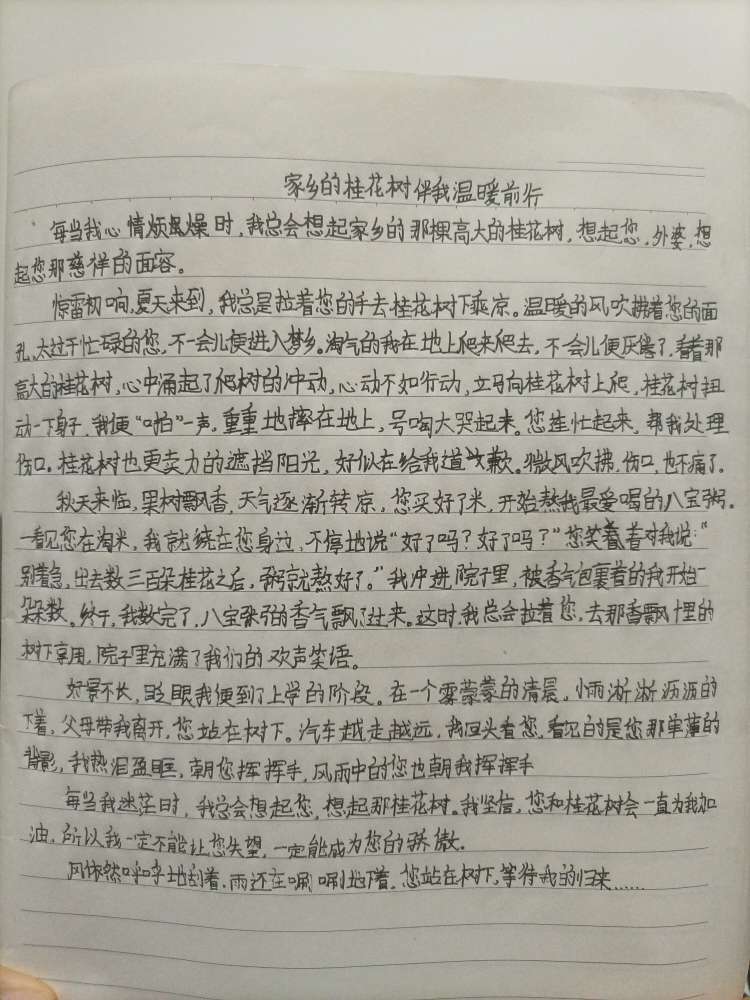 家乡的桂花树伴我温暖前行
每当我心情烦躁时，我总会想起家乡的那棵高大的桂花树，想起您，外婆，想
起您那慈祥的面容。
惊雷初响，夏天来到，我总是拉着您的手去桂花树下乘凉。温暖的风吹拂着您的面
孔，太过于忙碌的您，不一会儿便进入梦乡。淘气的我在地上爬来爬去，不会儿便厌倦了，看着那
高大的桂花树，心中涌起了爬树的冲动，心动不如行动，立马向桂花树上爬，桂花树扭
动一下身子，我便“啪”一声，重重地摔在地上，号啕大哭起来。您连忙起来，帮我处理
伤口。桂花树也更卖力的遮挡阳光，好似在给我道歉。微风吹拂，伤口，也不痛了。
秋天来临，果树飘香，天气逐渐转凉，您买好了米，开始熬我最爱喝的八宝粥。
一看见您在淘米，我就绕在您身边，不停地说“好了吗？好了吗？”您笑着对我说：“
别着急，出去数三百朵桂花之后，粥就熬好了。”我冲进院子里，被香气包裹着的我开始一
朵朵数。终于，我数完了，八宝粥的香气飘了过来。这时，我总会拉着您，去那香飘十里的
树下享用，院子里充满了我们的欢声笑语。
好景不长，眨眼我便到了上学的阶段。在一个雾蒙蒙的清晨，小雨淅淅沥沥的
下着，父母带我离开，您站在树下。汽车越走越远，我回头看您，看见的是您那单薄的
背影，我热泪盈眶，朝您挥挥手，风雨中的您也朝我挥挥手
每当我迷茫时，我总会想起您，想起那桂花树。我坚信，您和桂花树会一直为我加
油，所以我一定不能让您失望，一定能成为您的骄傲。
风依然呼呼地刮着，雨还在唰唰地下着。您站在树下，等待我的归来……